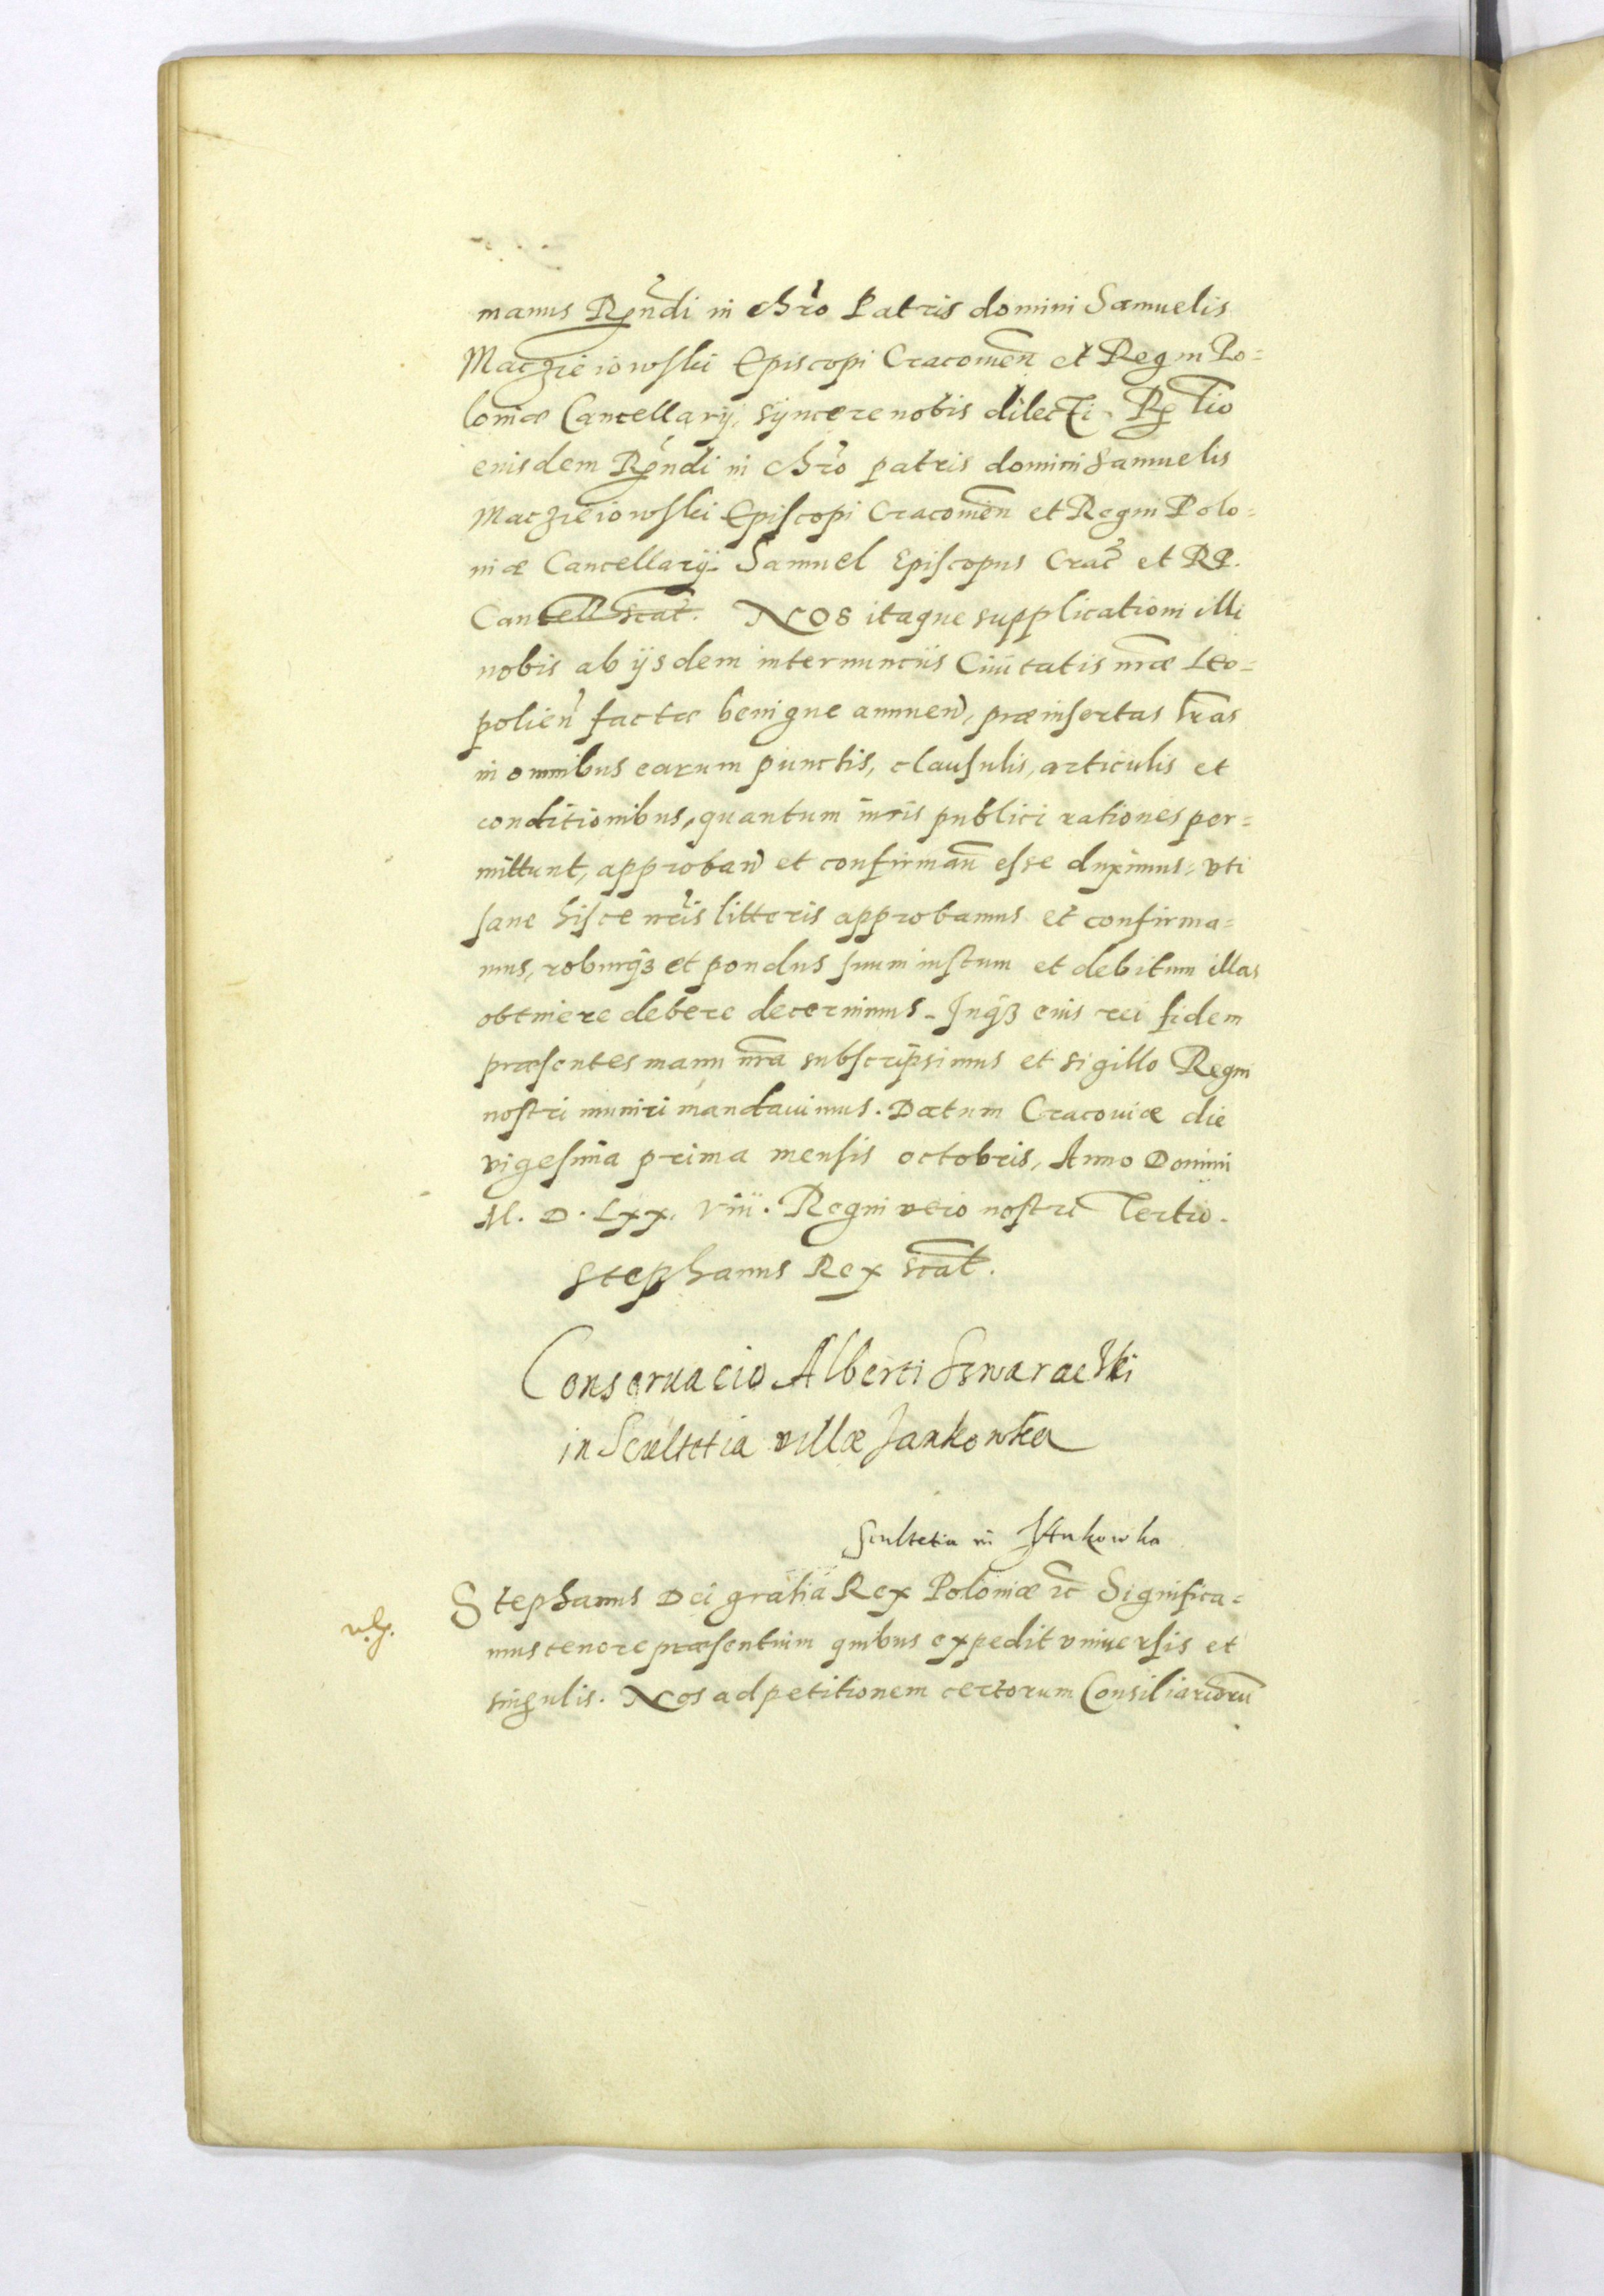 manus Rndi in Chro Patris domini Samuelis
Maczieiowski Episcopi Cracovien et Regni Po=
loniæ Cancellarij, syncere nobis dilecti. Rltio
eiusdem Rndi in Chro patris domini Samuelis
Maczieiowski Episcopi Cracovien et Regni Polo=
niæ Cancellarij. Samuel Episcopus Crac et RP.
Cancell scat. Nos itaque supplicationi illi
nobis ab ijsdem internunciis Ciuitatis nræ Leo=
polien factæ benigne annuen, præinsertas lras
in omnibus earum punctis, clausulis, articulis et
conditionibus, quantum iuris publici rationes per=
mittunt, approban et confirman esse duximus: vti
sane hisce nris litteris approbamus et confirma=
mus, roburq3 et pondus suum iustum et debitum illas
obtinere debere decernimus. Inq3 eius rei fidem
præsentes manu nra subscripsimus et sigillo Regni
nostri muniri mandauimus. Datum Cracouiæ die
vigesima prima mensis octobris, Anno Domini
M. D. Lxx. viii. Regni vero nostri Tertio.
Stephanus Rex scat.
Conseruacio Alberti
in Scultetia villæ Jankowka
Scultetia in Jankowka
Stephanus Dei gratia Rex Poloniæ &c Significa=
mus tenore præsentium quibus expedit vniuersis et
singulis. Nos ad petitionem certorum Consiliariorū